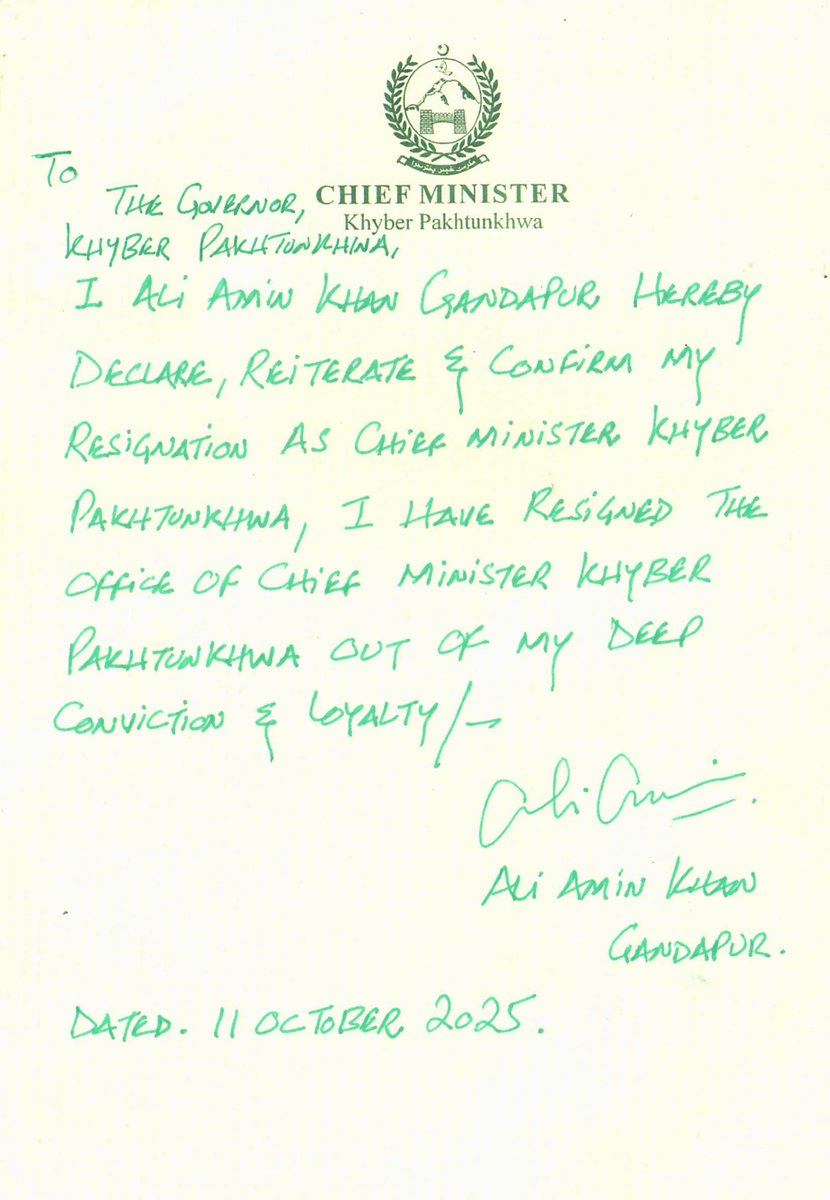 حکومت خیبر پختونخوا
CHIEF MINISTER
Khyber Pakhtunkhwa
To
THE GOVERNOR,
KHYBER PAKHTUNKHWA,
I ALI AMIN KHAN GANDAPUR HEREBY
DECLARE, REITERATE & CONFIRM MY
RESIGNATION AS CHIEF MINISTER KHYBER
PAKHTUNKHWA, I HAVE RESIGNED THE
OFFICE OF CHIEF MINISTER KHYBER
PAKHTUNKHWA OUT OF MY DEEP
CONVICTION & LOYALTY/-
Ali Amin.
ALI AMIN KHAN
GANDAPUR.
DATED. 11 OCTOBER 2025.